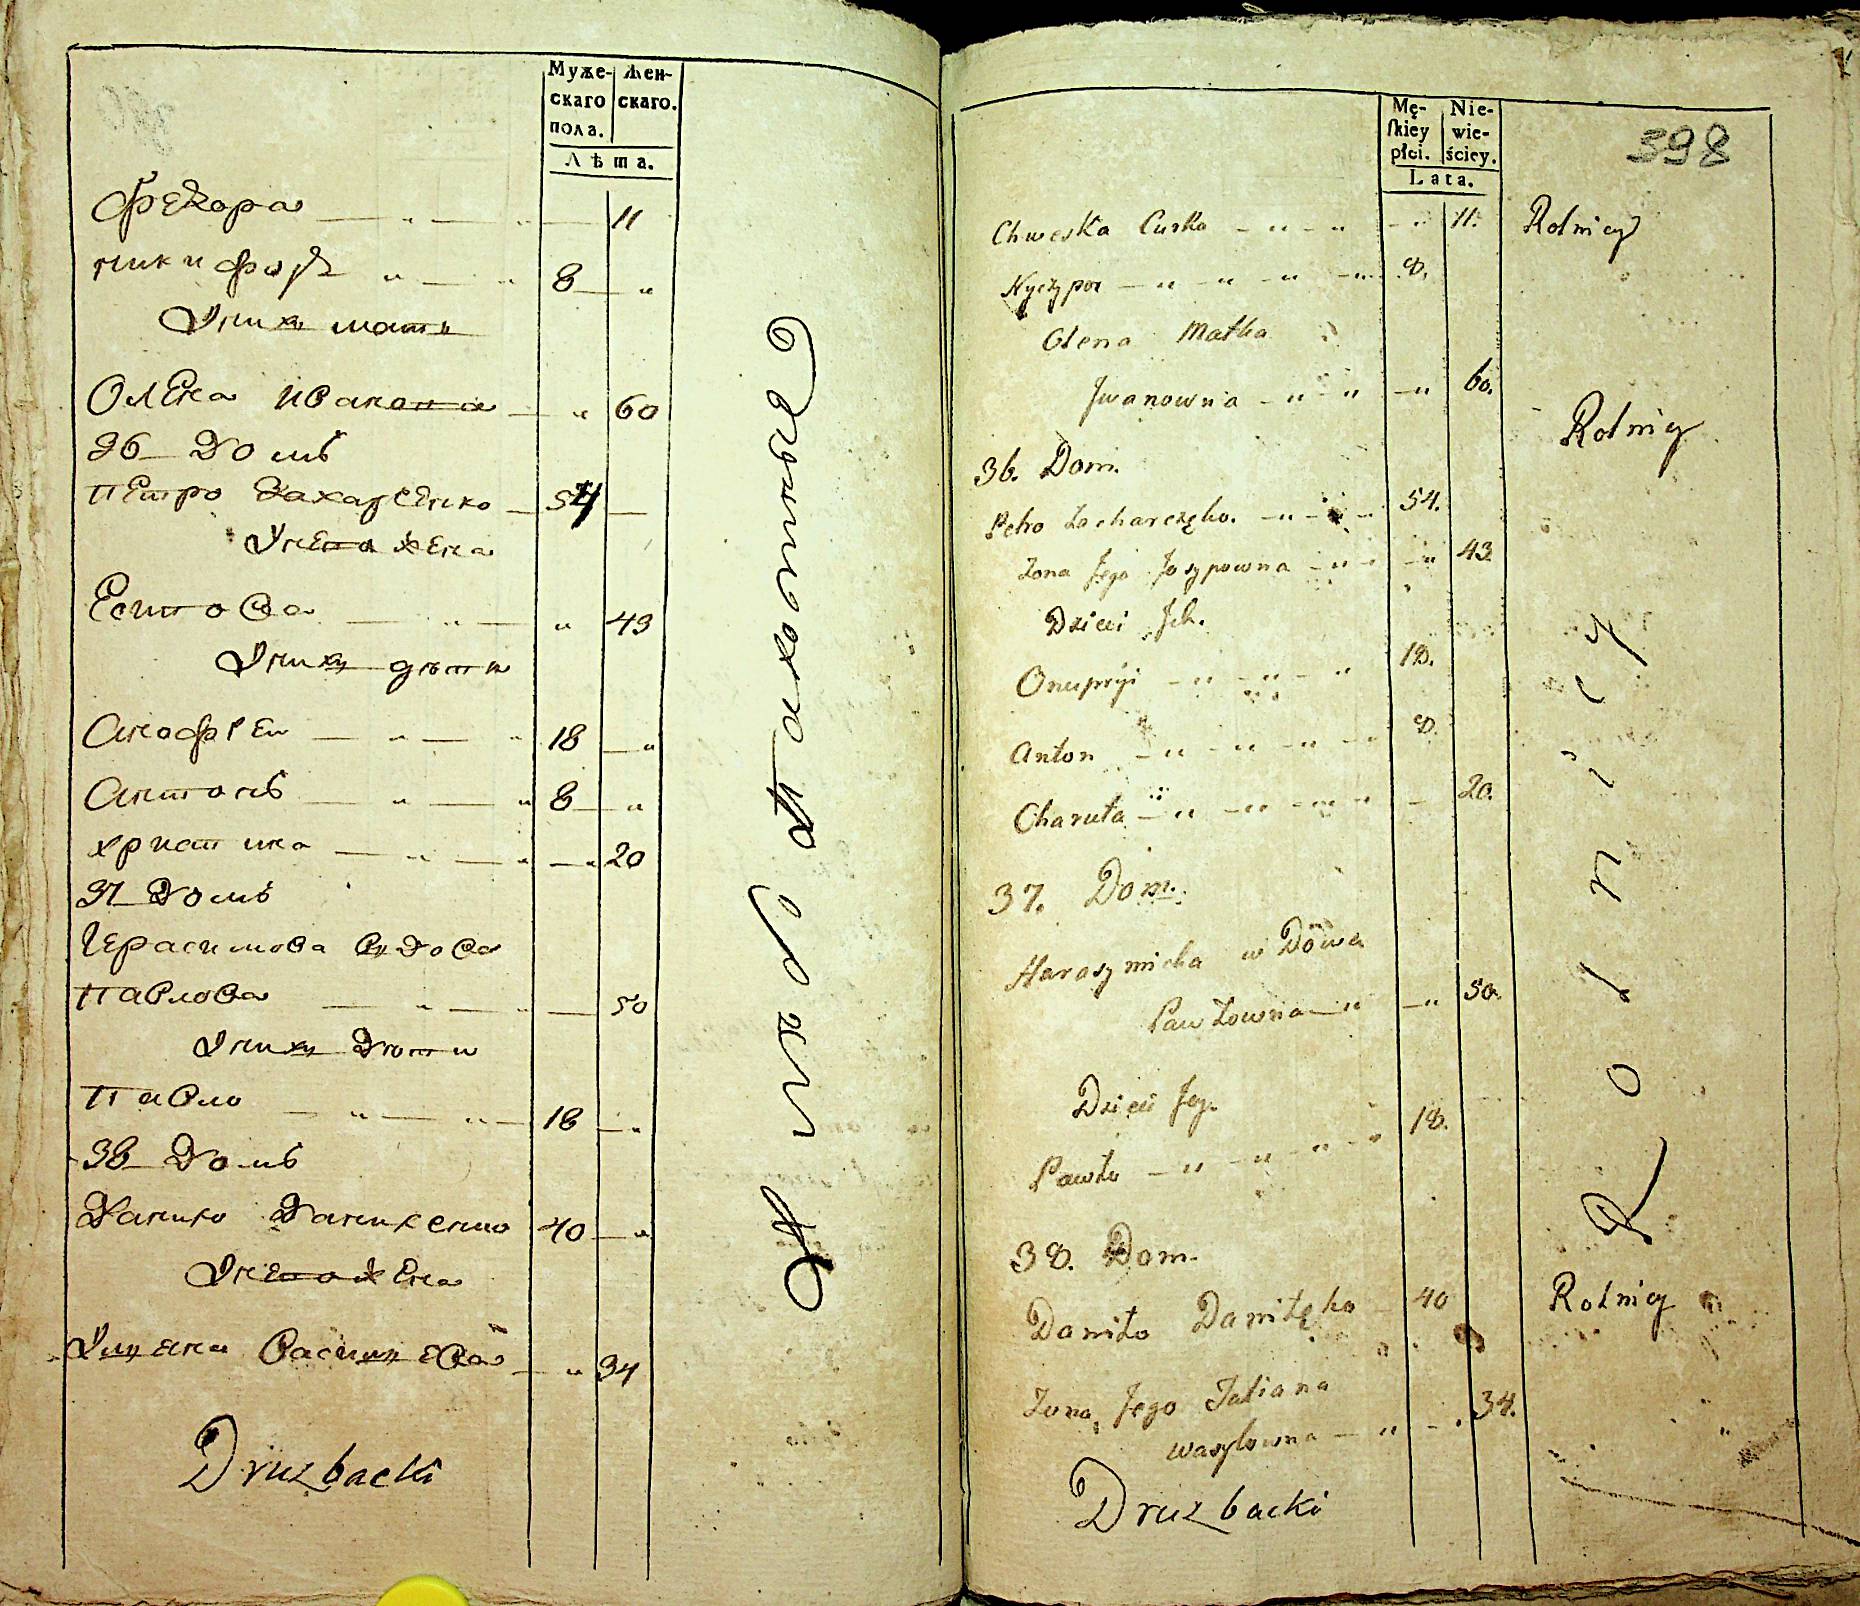 Муже- Жен-
скаго скаго.
пола.
Лѣта.
Федора 11
никифоръ 8
Уних мать
Олена Ивановна 60
36 Домъ
Петро Захарченко 54
Унего жена
Есипова 43
Уних дети
Анофрей 18
Антонъ 8
христина 20
37 Домъ
Герасимова вдова
Павлова 50
Уних дети
Павло 18
38 Домъ
Данило Даниленко 40
Унего жена
Улияна Васильева 34
Druzbacki
Mę- Nie-
skiey wie-
płci. ściey.
Lata.
398
Chweska Curka 11. Rolnicy
Nyczypor 8.
Olena Matka
Jwanowna 60.
Rolnicy
36. Dom.
Petro Zacharczęko. 54.
Zona Jego Josypowna 43
Dzieci Jch.
Onupryi 18.
Anton 8.
Charuta 20.
37. Dom.
Harasymicha w Dowa
Pawłowna 50.
Dzieci Jey.
Pawło 18.
38. Dom.
Daniło Daniłęko 40 Rolnicy
Zona Jego Tatiana 34.
wasylowna
Druzbacki
Rolnicy